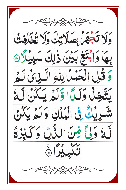 وَلَا تَجْهَرْ بِصَلَاتِكَ وَلَا تُخَافِتْ
بِهَا وَابْتَغِ بَيْنَ ذَٰلِكَ سَبِيلًا
وَقُلِ الْحَمْدُ لِلَّهِ الَّذِي لَمْ
يَتَّخِذْ وَلَدًا وَلَمْ يَكُنْ لَهُ
شَرِيكٌ فِي الْمُلْكِ وَلَمْ يَكُنْ
لَهُ وَلِيٌّ مِنَ الذُّلِّ وَكَبِّرْهُ
تَكْبِيرًا